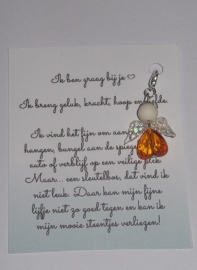 Ik ben graag bij je ♡
Ik breng geluk, kracht, hoop en liefde.
Ik vind het fijn om aan
hangen, bungel aan de spiegel
auto of verblijf op een veilige plek.
Maar... een sleutelbos, dat vind ik
niet leuk. Daar kan mijn fijne
lijfje niet zo goed tegen en kan ik
mijn mooie steentjes verliezen!